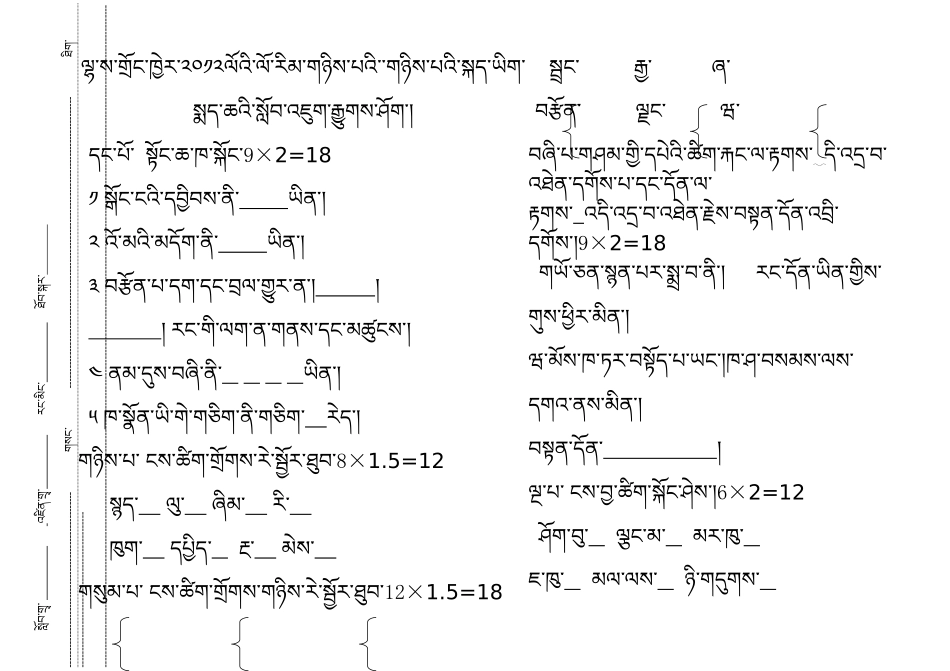 ལྷ་ས་གྲོང་ཁྱེར་༢༠༡༢ལོའི་ལོ་རིམ་གཉིས་པའི་་གཉིས་པའི་སྐད་ཡིག་
སྨད་ཆའི་སློབ་འཇུག་རྒྱུགས་ཤོག།
དང་པོ་  སྟོང་ཆ་ཁ་སྐོང་9×2=18
༡ སྒོང་ངའི་དབྱིབས་ནི་_____ཡིན།
༢ འོ་མའི་མདོག་ནི་_____ཡིན།
༣ བརྩོན་པ་དག་དང་བྲལ་གྱུར་ན།______།
_______། རང་གི་ལག་ན་གནས་དང་མཚུངས།
༤ ནམ་དུས་བཞི་ནི་_ _ _ _ཡིན།
༥ ཁ་སྣོན་ཡི་གེ་གཅིག་ནི་གཅིག་__རེད།
གཉིས་པ་ ངས་ཚིག་གྲོགས་རེ་སྦྱོར་ཐུབ་8×1.5=12
སྙད་__ ལུ་__ ཞིམ་__ རི་__
ཁུག་__ དཔྱིད་__ རྔ་__ མེས་__
གསུམ་པ་ ངས་ཚིག་གྲོགས་གཉིས་རེ་སྦྱོར་ཐུབ་12×1.5=18
སྦྲང་ རྒྱ་ ཞ་
བརྩོན་ ལྗང་ ཝ་
བཞི་པ་གཤམ་གྱི་དཔེའི་ཚིག་རྐང་ལ་རྟགས་ དི་འདྲ་བ་
འཐེན་དགོས་པ་དང་དོན་ལ་
རྟགས་_འདི་འདྲ་བ་འཐེན་རྗེས་བསྟན་དོན་འབྲི་
དགོས།9×2=18
གཡོ་ཅན་སྙན་པར་སྨྲ་བ་ནི།   རང་དོན་ཡིན་གྱིས་
གུས་ཕྱིར་མིན།
ཝ་མོས་ཁ་ཏར་བསྟོད་པ་ཡང་།ཁ་ཤ་བསམས་ལས་
དགའ་ནས་མིན།
བསྟན་དོན་___________།
ལྔ་པ་ ངས་བྱ་ཚིག་སྐོང་ཤེས།6×2=12
ཤོག་བུ་__ ལྕང་མ་__ མར་ཁུ་__
ཇ་ཁུ་__ མལ་ལས་__ ཉི་གདུགས་__
ཐིག་
ཐོབ་སྐར་
རང་མིང་
གསང་
འཛིན་གྲྭ་
སློབ་གྲྭ་